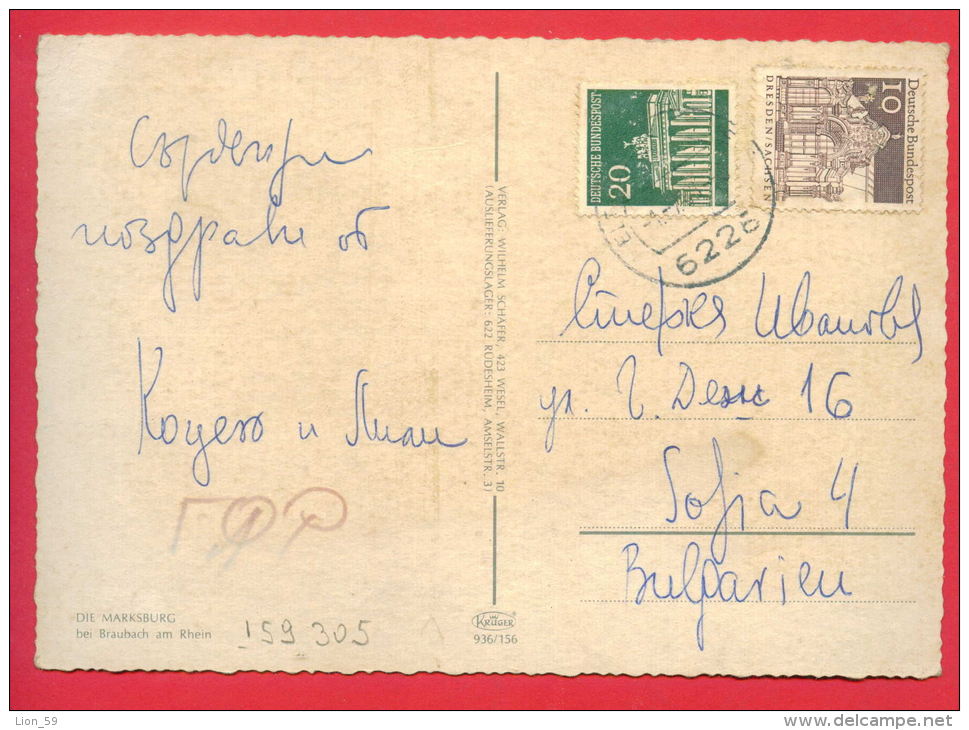 Сърдечни
поздрави от
Коцето и Лиан
ГФР
DIE MARKSBURG
bei Braubach am Rhein
159 305
VERLAG: WILHELM SCHÄFER, 423 WESEL, WALLSTR. 10
(AUSLIEFERUNGSLAGER: 622 RÜDESHEIM, AMSELSTR. 3)
KRÜGER
936/156
DEUTSCHE BUNDESPOST
20
Deutsche Bundespost
10
DRESDEN/SACHSEN
6228
Иванова
ул. 16
Sofia 4
Bulgarien
Lion_59
delcampe.net